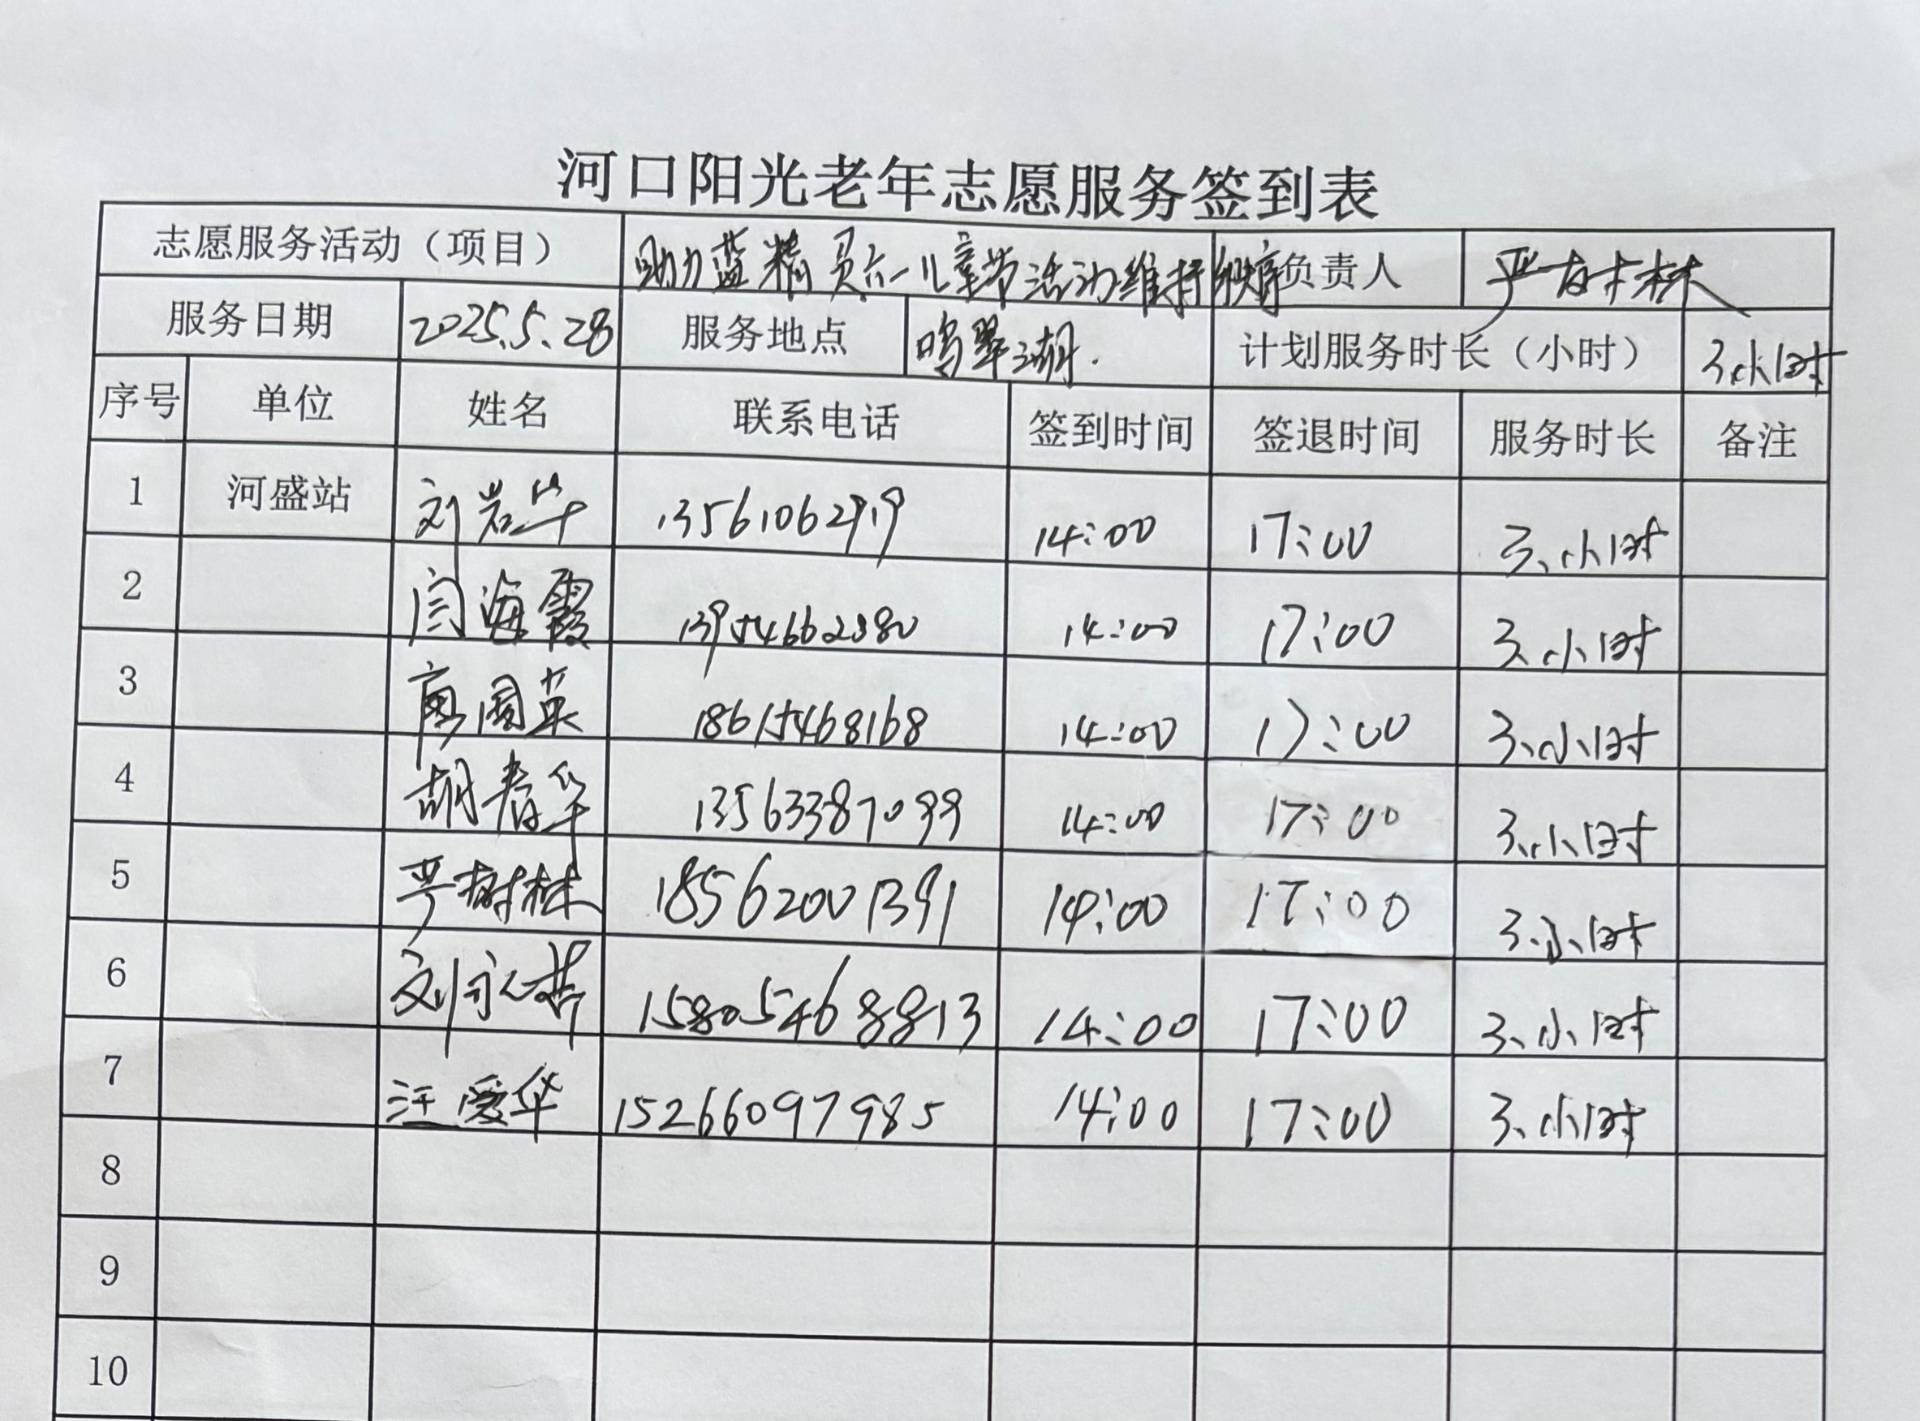 河口阳光老年志愿服务签到表
志愿服务活动（项目） 助力蓝精灵六一儿童节活动维持秩序 负责人 严树林
服务日期 2025.5.28 服务地点 鸣翠湖. 计划服务时长（小时） 3小时
序号 单位 姓名 联系电话 签到时间 签退时间 服务时长 备注
1 河盛站 刘岩华 13561062919 14:00 17:00 3小时
2 闫海霞 13954662880 14:00 17:00 3小时
3 国英 18615468168 14:00 17:00 3小时
4 胡春华 13563387099 14:00 17:00 3小时
5 严树林 18562001391 14:00 17:00 3小时
6 刘永 15805468813 14:00 17:00 3小时
7 汪爱华 15266097985 14:00 17:00 3小时
8
9
10